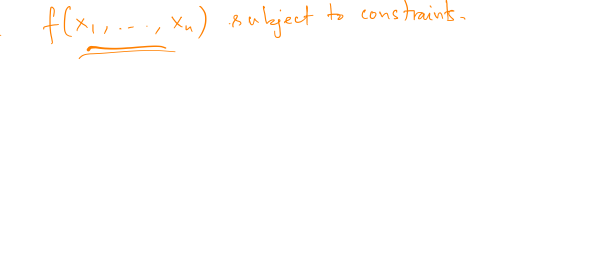 f(x₁, ..., xₙ) subject to constraints.